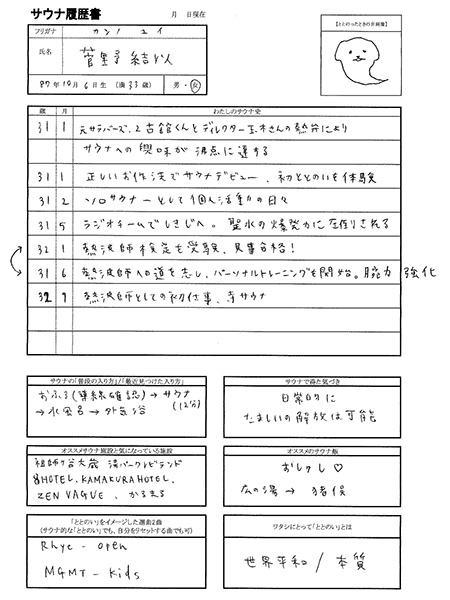 サウナ履歴書
月 日現在
フリガナ カンノ ユイ
氏名 菅野 結以
87年10月6日生(満33歳) 男・女
【ととのったときの自画像】
歳 月 わたしのサウナ史
31 1 元サラバーズ、古舘くんとディレクター玉木さんの熱弁により
サウナへの興味が沸点に達する
31 1 正しいお作法でサウナデビュー、初ととのいを体験
31 2 ソロサウナーとして個人活動の日々
31 5 ラジオチームでしきじへ。聖水の爆発力に圧倒される
32 1 熱波師検定を受験、見事合格!
31 6 熱波師への道を志し、パーソナルトレーニングを開始。腕力強化
32 9 熱波師としての初仕事、寺サウナ
サウナの「普段の入り方」/「最近見つけた入り方」
おふろ(集線確認)→サウナ(12分)
→水風呂→外気浴
サウナで得た気づき
日常的に
たましいの解放は可能
オススメサウナ施設と気になっている施設
祖師ヶ谷大蔵 湯パークレビランド
8HOTEL、KAMAKURA HOTEL、
ZEN VAGUE、かるまる
オススメのサウナ飯
おしるし♡
広の湯 → 猪俣
「ととのい」をイメージした選曲2曲
(サウナ的な「ととのい」でも、自分をリセットする曲でも可)
Rhye - Open
MGMT - Kids
ワタシにとって「ととのい」とは
世界平和 / 本質